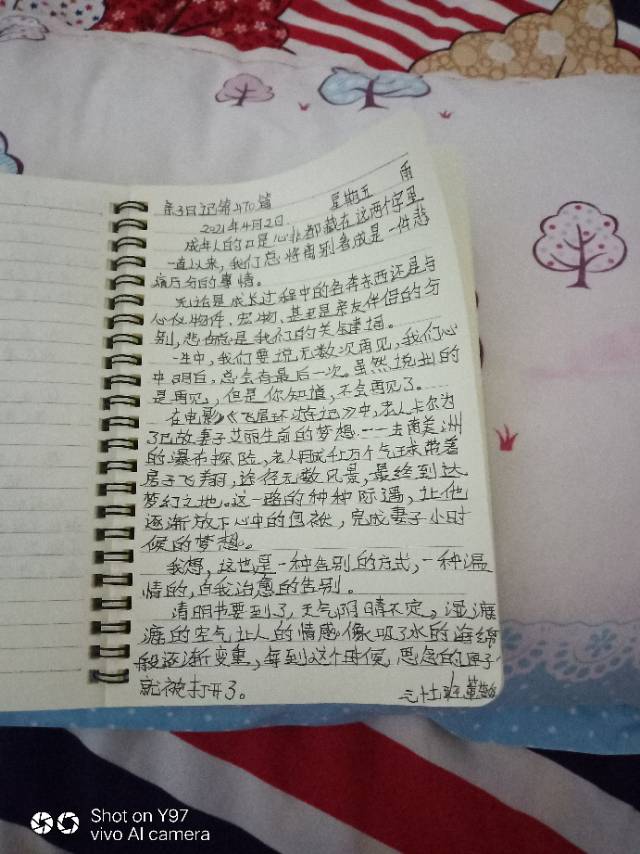 亲子日记第470篇
2021年4月2日 星期五 雨
成年人的口是心非都藏在这两个字里
一直以来,我们总将离别看成是一件悲
痛万分的事情。
无论是成长过程中的各奔东西还是与
心仪物件、宠物、甚至是亲友伴侣的分
别,悲伤总是我们的关键词。
一生中,我们要说无数次再见,我们心
中明白,总会有最后一次。虽然说出的
是再见,但是你知道,不会再见了。
在电影《飞屋环游记》中,老人卡尔为
了已故妻子艾丽生前的梦想——去南美洲
的瀑布探险,老人用成千上万个气球带着
房子飞翔,途径无数风景,最终到达
梦幻之地。这一路的种种际遇,让他
逐渐放下心中的包袱,完成妻子小时
候的梦想。
我想,这也是一种告别的方式,一种温
情的,自我治愈的告别。
清明节要到了,天气阴晴不定,湿漉
漉的空气让人的情感像吸了水的海绵
般逐渐变重,每到这个时候,思念的匣子
就被打开了。
三十七班 董
Shot on Y97
vivo AI camera